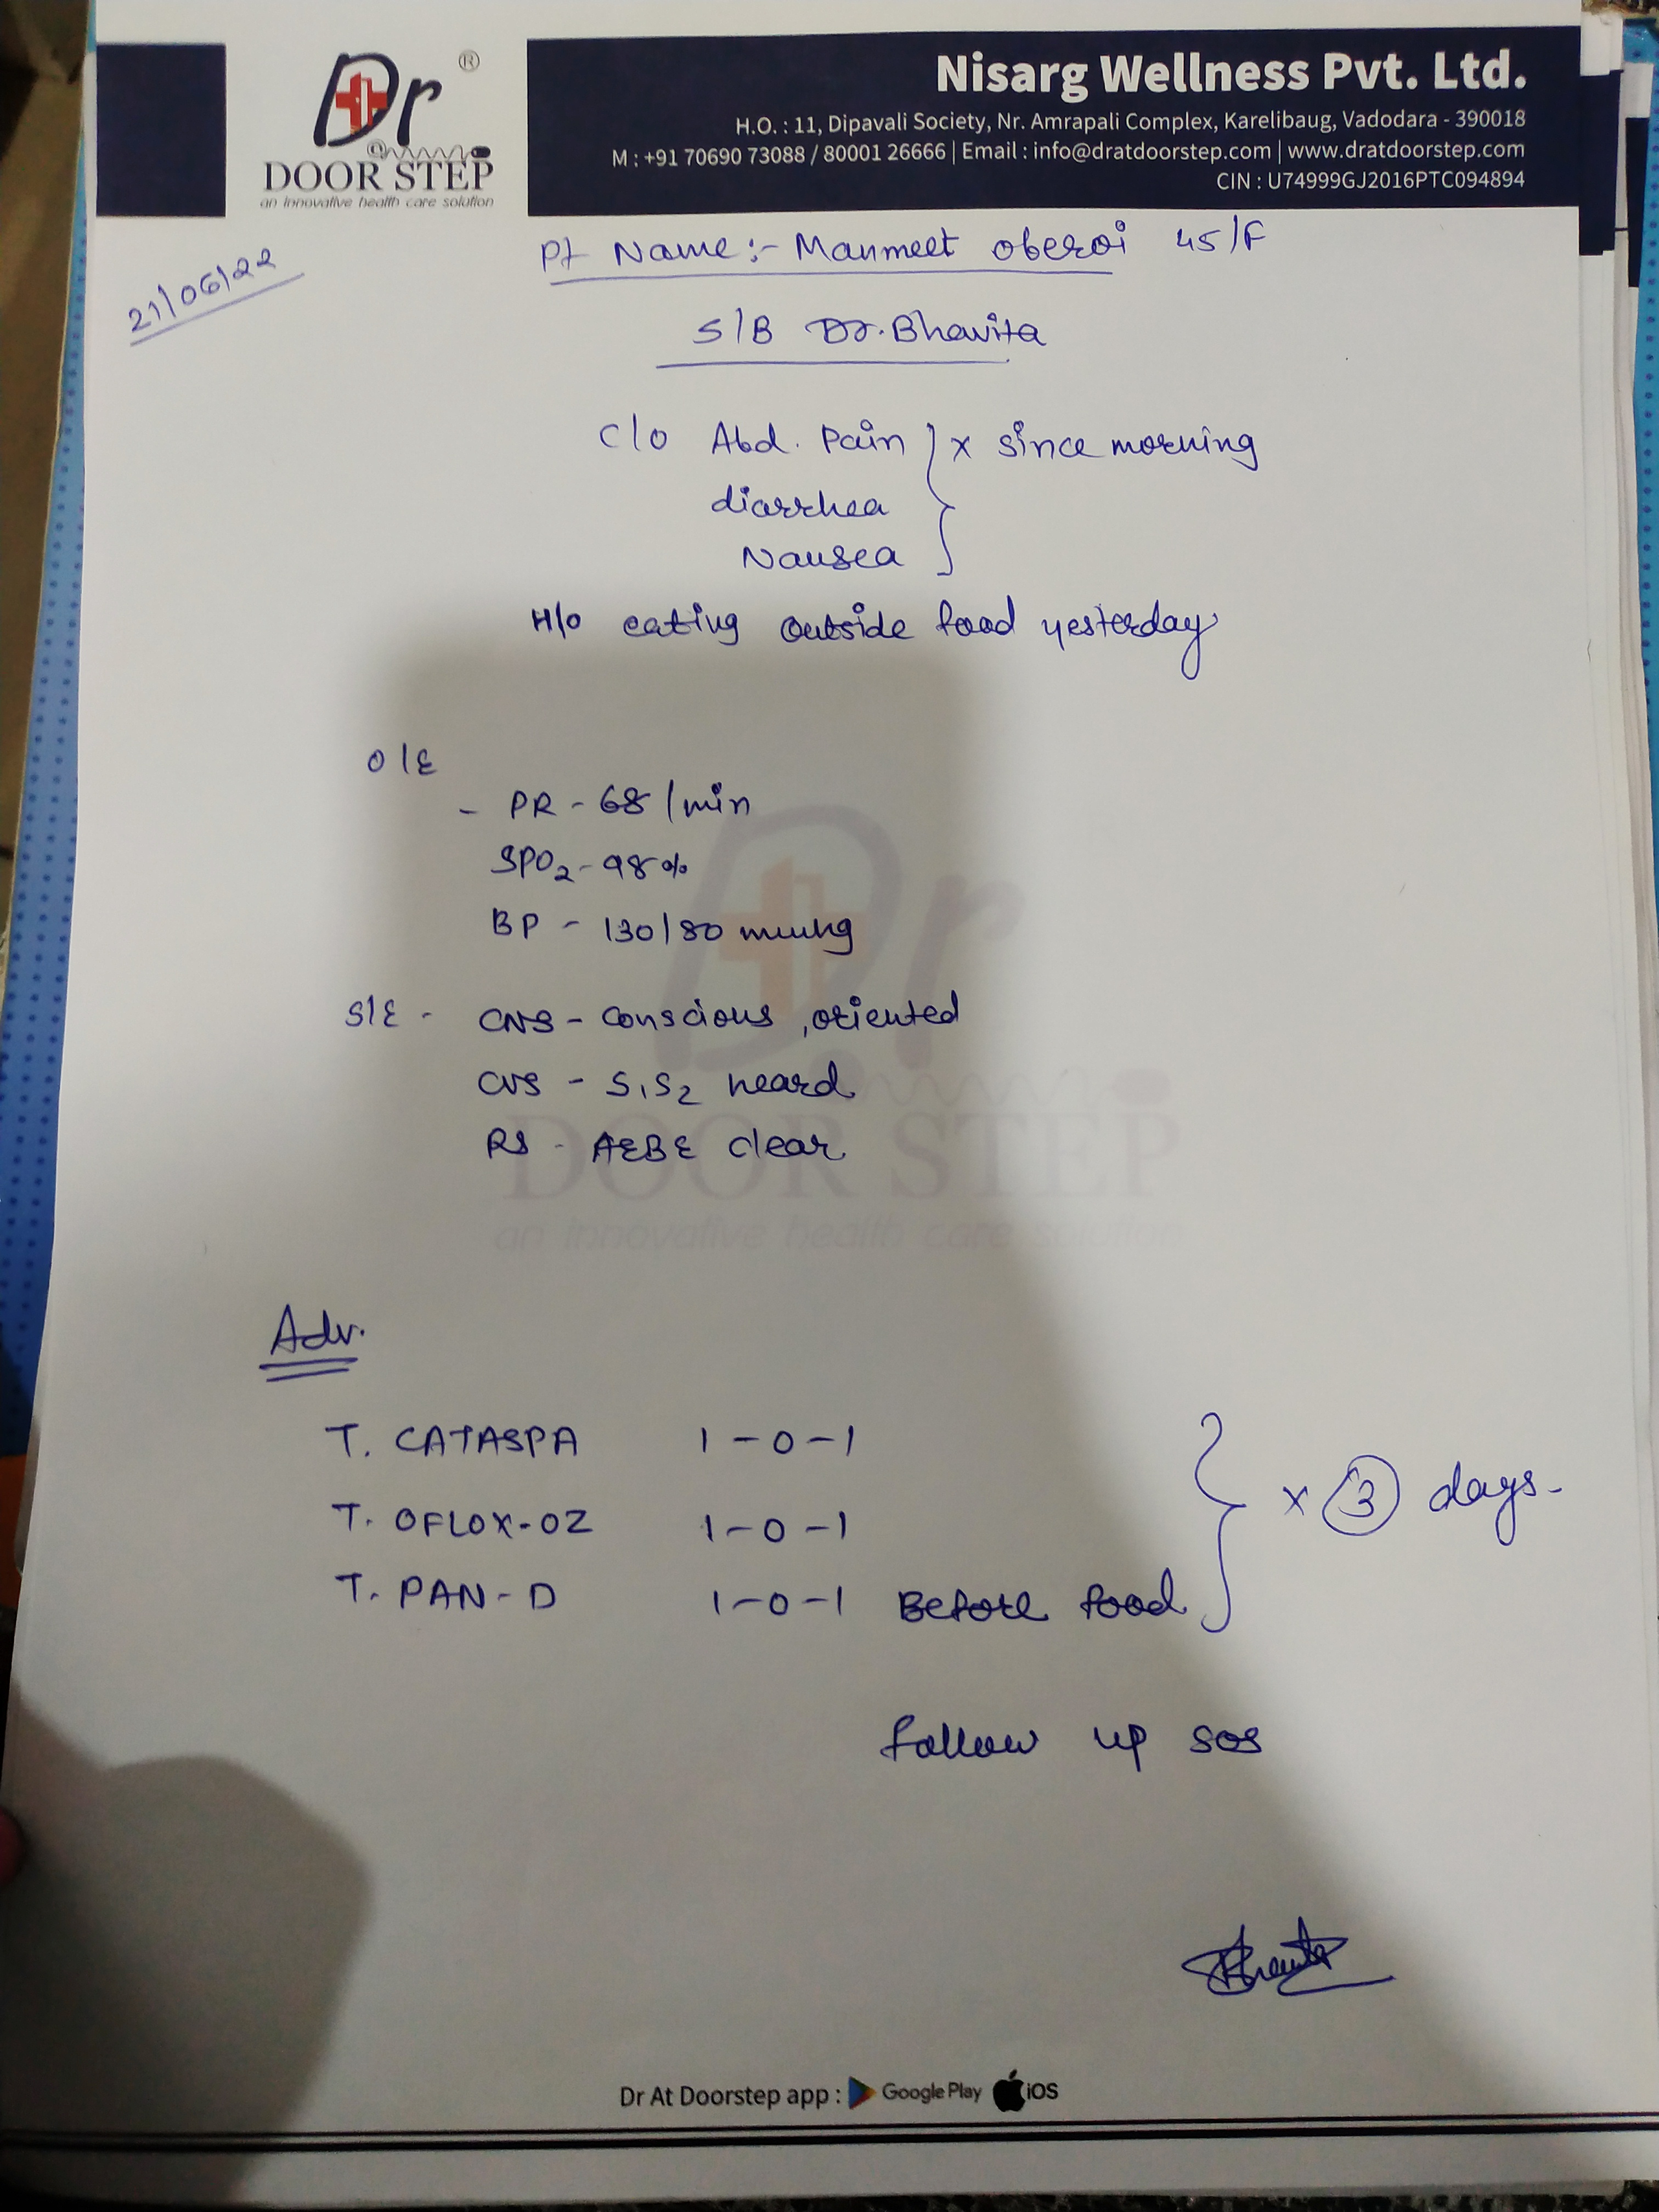 Dr ®
DOOR STEP
an innovative health care solution
Nisarg Wellness Pvt. Ltd.
H.O. : 11, Dipavali Society, Nr. Amrapali Complex, Karelibaug, Vadodara - 390018
M : +91 70690 73088 / 80001 26666 | Email : info@dratdoorstep.com | www.dratdoorstep.com
CIN : U74999GJ2016PTC094894
21/06/22
Pt Name :- Manmeet Oberoi 45/F
S/B Dr. Bhavita
C/O Abd. Pain } x since morning
diarrhea
Nausea
H/o eating outside food yesterday
O/E
- PR - 68 /min
SPO2 - 98%
BP - 130/80 mmhg
S/E - CNS - conscious, oriented
CVS - S1S2 heard
RS - AEBE clear
Dr
DOOR STEP
an innovative health care solution
Adv.
T. CATASPA 1-0-1
T. OFLOX-OZ 1-0-1 } x 3 days.
T. PAN-D 1-0-1 Before food
follow up sos
Bhavita
Dr At Doorstep app : Google Play iOS